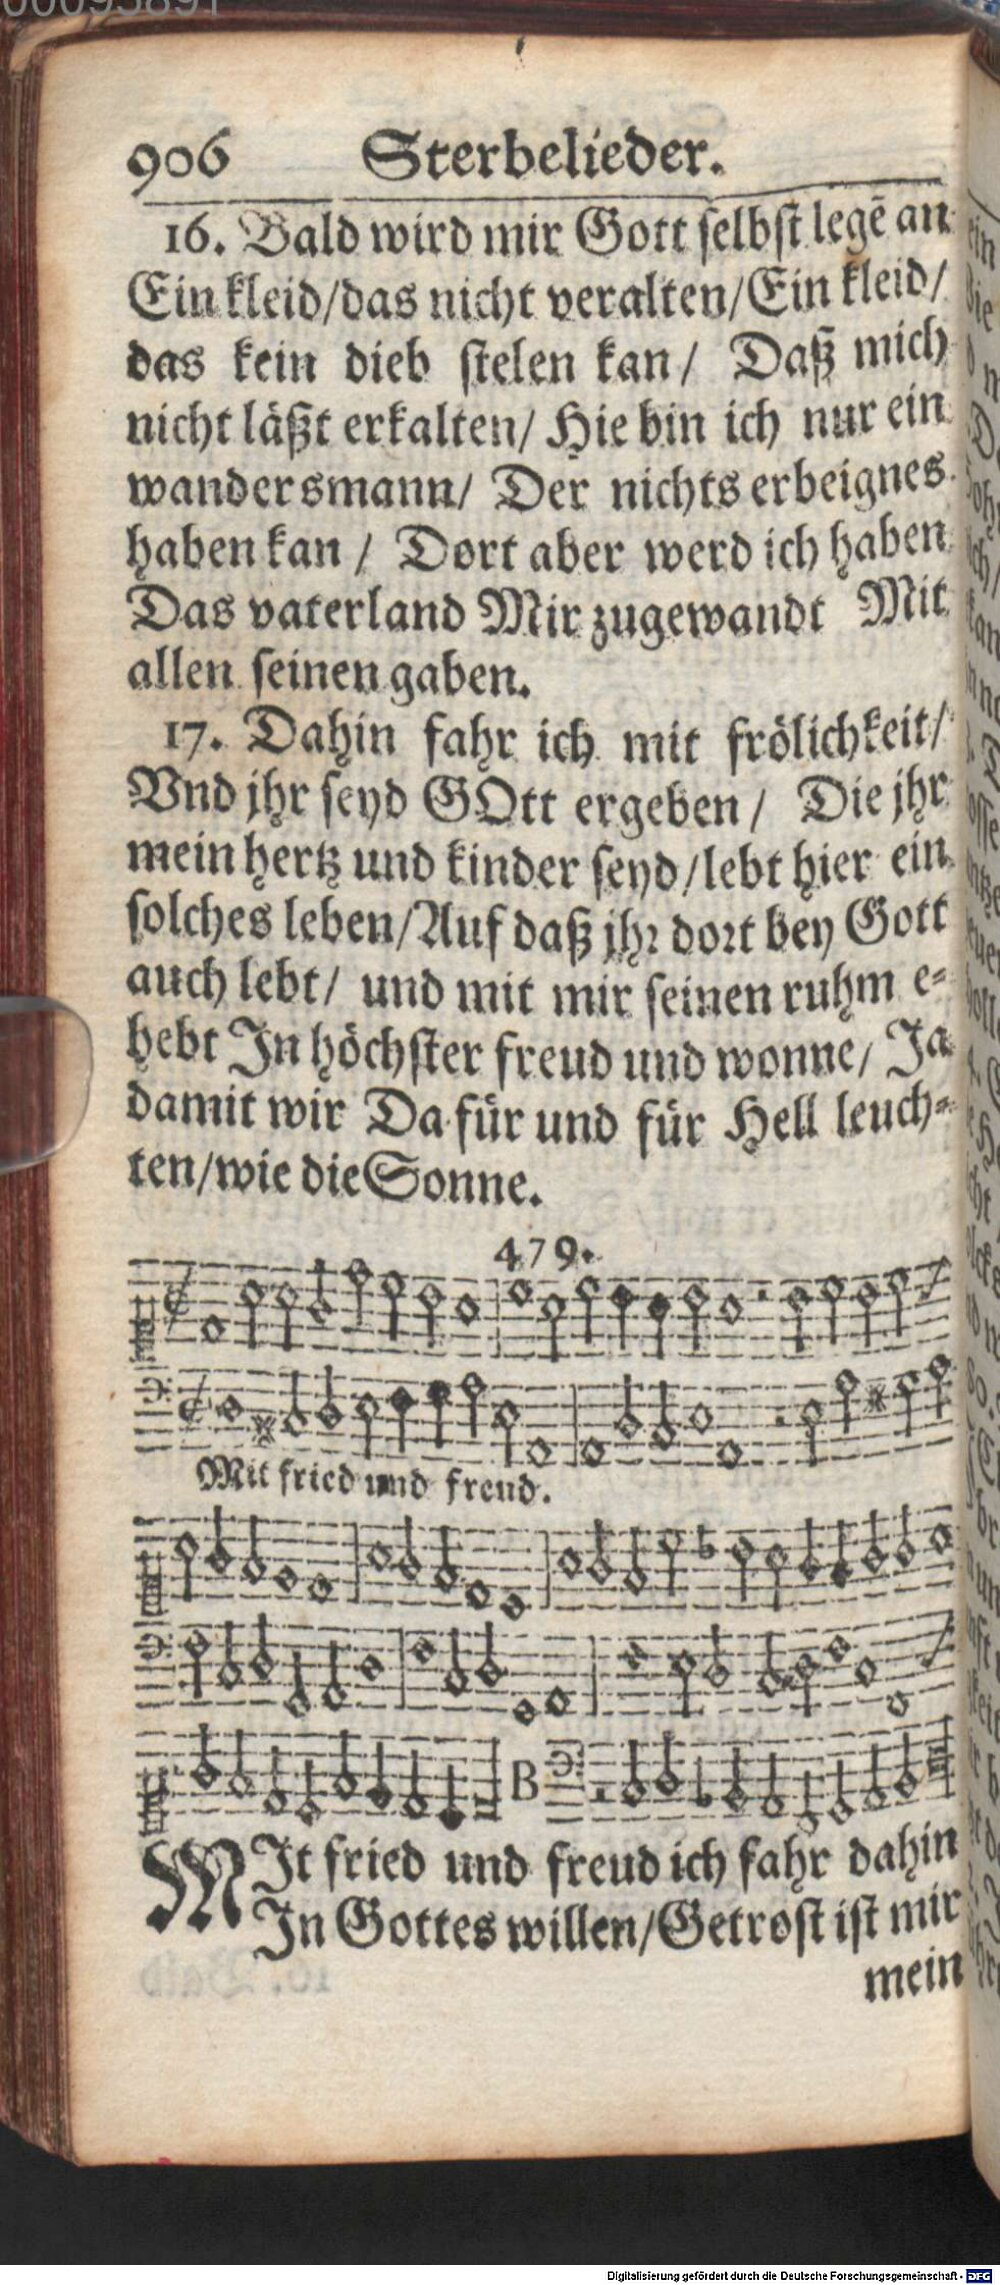 906 Sterbelieder.
16. Bald wird mir Gott selbst legẽ an
Ein kleid/das nicht veralten/Ein kleid/
das kein dieb stelen kan/ Daß mich
nicht läßt erkalten/ Hie bin ich nur ein
wandersmann/ Der nichts erbeignes
haben kan / Dort aber werd ich haben
Das vaterland Mir zugewandt Mit
allen seinen gaben.
17. Dahin fahr ich mit frölichkeit/
Vnd jhr seyd GOtt ergeben/ Die jhr
mein hertz und kinder seyd/lebt hier ein
solches leben/Auf daß jhr dort bey Gott
auch lebt/ und mit mir seinen ruhm e-
hebt In höchster freud und wonne/ Ja
damit wir Da für und für Hell leuch-
ten/wie die Sonne.
479.
Mit fried und freud.
B
MIt fried und freud ich fahr dahin
In Gottes willen/Getrost ist mir
mein
Digitalisierung gefördert durch die Deutsche Forschungsgemeinschaft - DFG